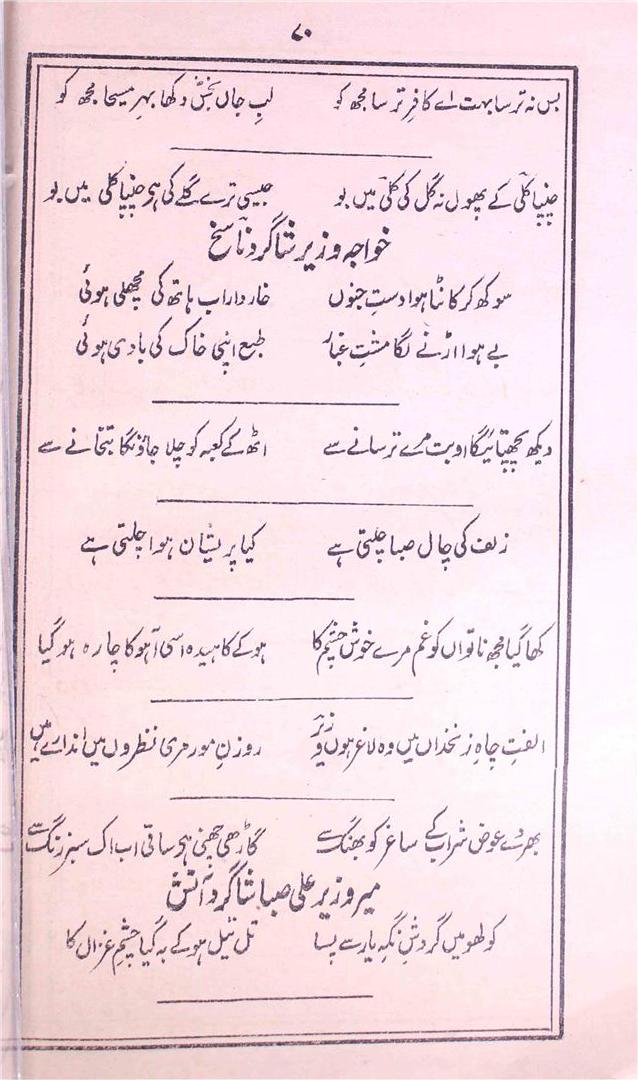 ۸۰
بس نہ ترسا بہت اے کافرِ ترسا مجھ کو لبِ جاں بخش دکھا بہرِ مسیحا مجھ کو
چنپا کلی کے پھول نہ گل کی کلی میں بو جیسی ترے گلے کی ہو چنپا کلی میں بو
خواجہ وزیر شاگرد ناسخ
سوکھ کر کانٹا ہوا دستِ جنوں خاردار اب ہاتھ کی مچھلی ہوئی
بے ہوا اڑنے لگا مشتِ غبار طبع اپنی خاک کی بادی ہوئی
دیکھ پچھتائیگا او بت مرے ترسانے سے اٹھ کے کعبہ کو چلا جاؤنگا بتخانے سے
زلف کی چال صبا چلتی ہے کیا پریشان ہوا چلتی ہے
کھا گیا مجھ ناتواں کو غم مرے خوش چشم کا ہو کے کاہیدہ اسی آہو کا چارہ ہو گیا
الفتِ چاہِ زنخداں میں وہ لاغر ہوں وزیر روزنِ مور مری نظروں میں اندارے ہیں
بھردے عوض شراب کے ساغر کو بھنگ سے گاڑھی چھنی ہو ساقی اب اک سبز رنگ سے
میر وزیر علی صبا شاگرد آتش
کولھو میں گردشِ نگہِ یار سے پسا تل تیل ہو کے بہ گیا چشمِ غزال کا